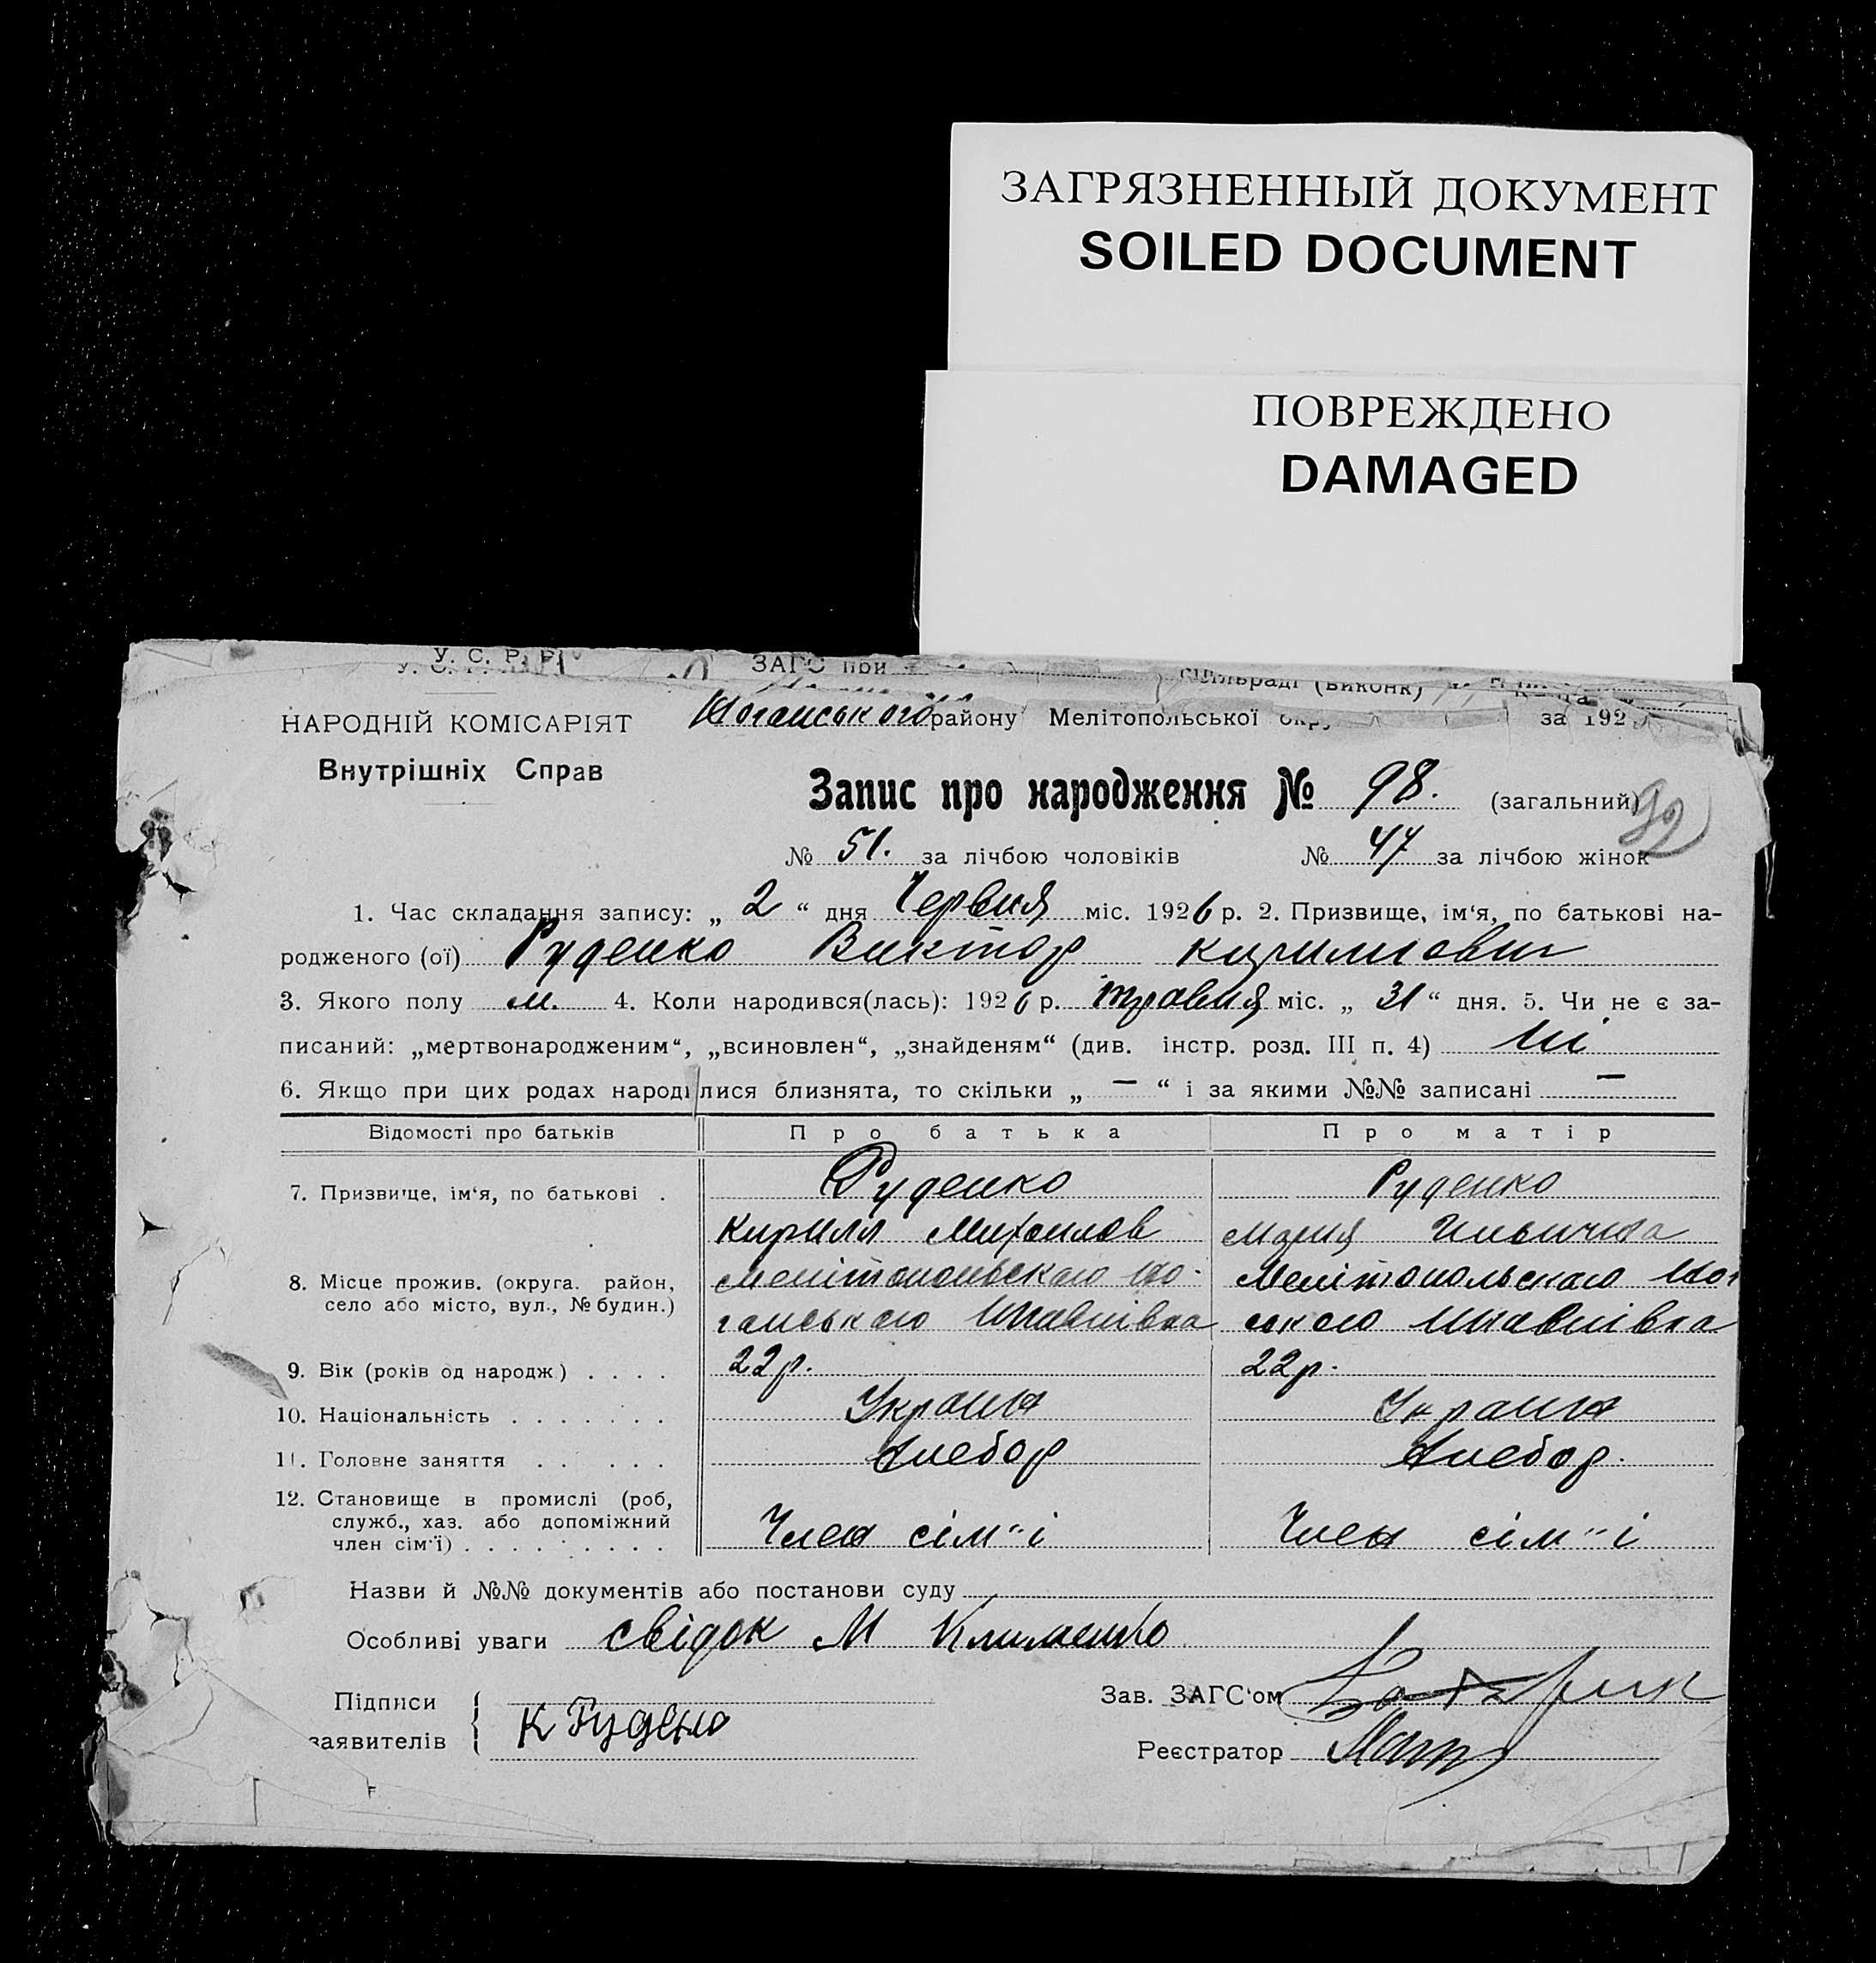 ЗАГРЯЗНЕННЫЙ ДОКУМЕНТ
SOILED DOCUMENT
ПОВРЕЖДЕНО
DAMAGED
У. С. Р. Р.
ЗАГС при
сільраді (виконк)
НАРОДНІЙ КОМІСАРІЯТ
Внутрішніх Справ
району Мелітопольської за 192
Запис про народження № 98. (загальний)
№ 51. за лічбою чоловіків № 47 за лічбою жінок
1. Час складання запису: „ 2 “ дня Червня міс. 1926 р. 2. Призвище, ім‘я, по батькові на-
родженого (ої) Руденко Виктор Кирилович
3. Якого полу м. 4. Коли народився(лась): 1926 р. травня міс. „ 31 “ дня. 5. Чи не є за-
писаний: „мертвонародженим“, „всиновлен“, „знайденям“ (див. інстр. розд. III п. 4) Ні
6. Якщо при цих родах народилися близнята, то скільки „ — “ і за якими №№ записані —
Відомості про батьків Про батька Про матір
7. Призвище, ім‘я, по батькові . Руденко Руденко
Кирилл Михаилов Мария
8. Місце прожив. (округа. район, Мелітопольского Мелітопольского
село або місто, вул., № будин.)
9. Вік (років од народж) . . . . 22р. 22р.
10. Національність . . . . . . . Украин Украин
11. Головне заняття . . . . . Хлебор Хлебор.
12. Становище в промислі (роб,
служб., хаз. або допоміжний
член сім‘ї) . . . . . . . . . Член сім"і Член сім"і
Назви й №№ документів або постанови суду
Особливі уваги свідок М Клименко
Підписи
заявителів К Руденко
Зав. ЗАГС‘ом
Реєстратор